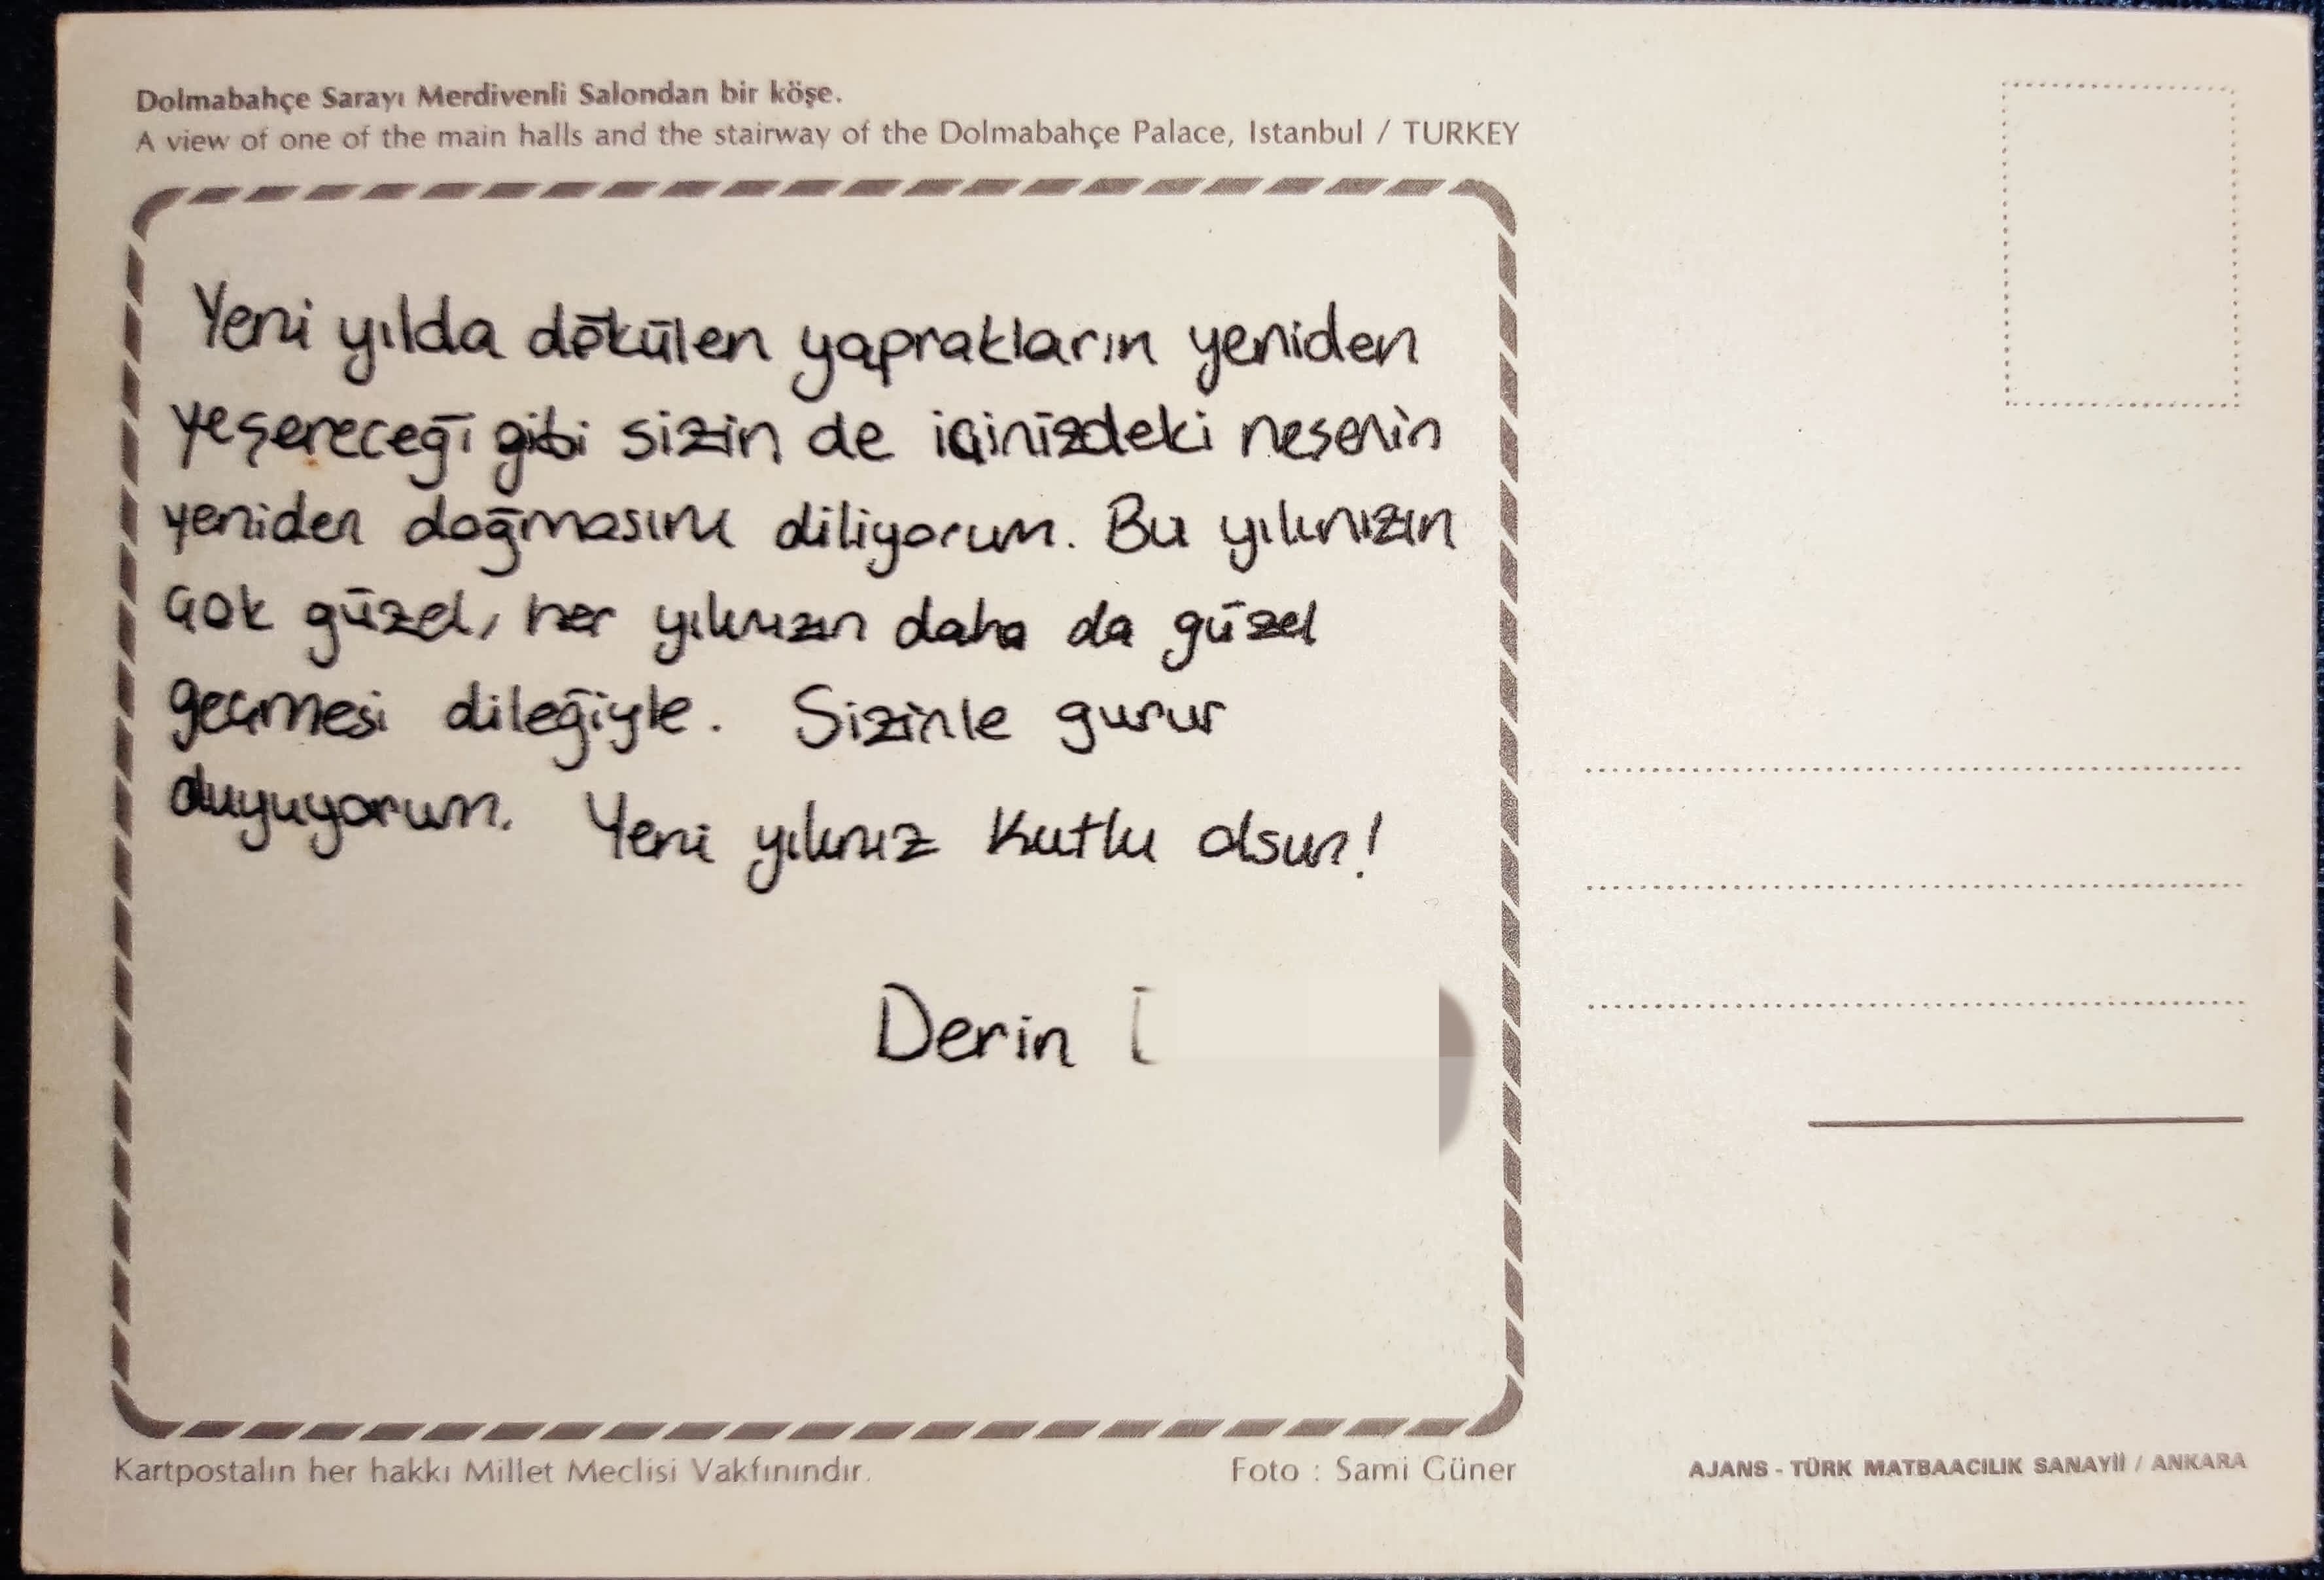 Dolmabahçe Sarayı Merdivenli Salondan bir köşe.
A view of one of the main halls and the stairway of the Dolmabahçe Palace, Istanbul / TURKEY
Yeni yılda dökülen yaprakların yeniden
yeşereceği gibi sizin de içinizdeki neşenin
yeniden doğmasını diliyorum. Bu yılınızın
çok güzel, her yılınızın daha da güzel
geçmesi dileğiyle. Sizinle gurur
duyuyorum. Yeni yılınız kutlu olsun!
Derin
Kartpostalın her hakkı Millet Meclisi Vakfınındır.
Foto : Sami Güner
AJANS - TÜRK MATBAACILIK SANAYİİ / ANKARA